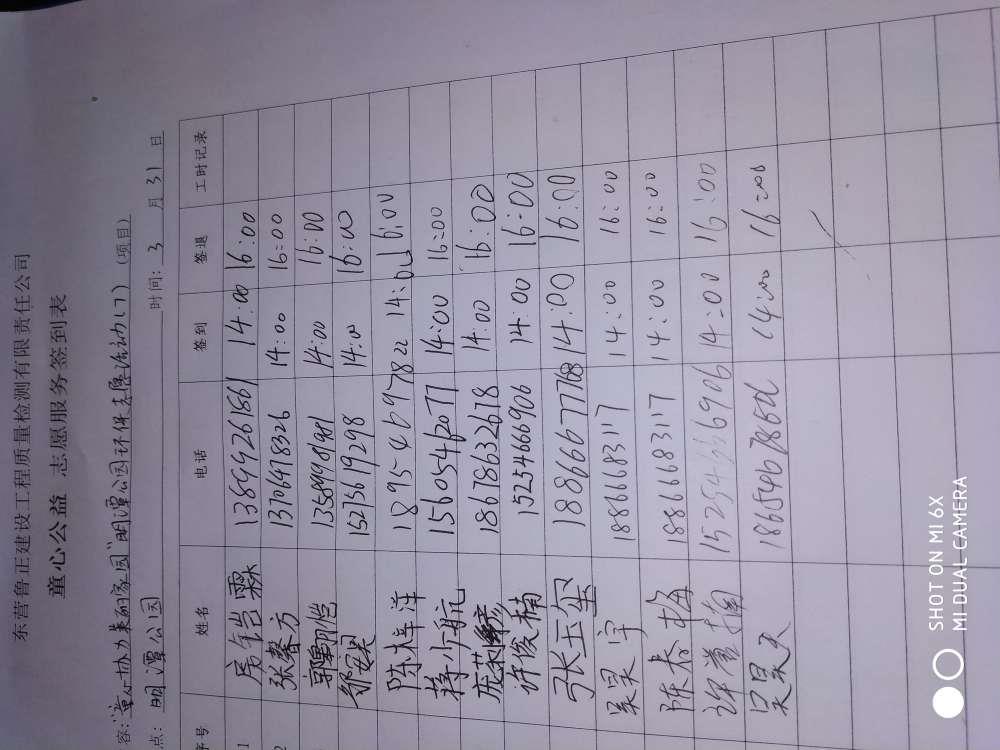 东营鲁正建设工程质量检测有限责任公司
童心公益 志愿服务签到表
容:"童心协力美丽家园"明潭公园环保志愿活动(7) (项目)
点: 明潭公园 时间: 3 月 31 日
序号 姓名 电话 签到 签退 工时记录
1 房钰皑霖 13899261561 14:00 16:00
2 张馨方 13706478326 14:00 16:00
13589981981 14:00 16:00
15273619298 14:00 16:00
陈梓洋 18954697822 14:00 16:00
蒋少航 15605462077 14:00 16:00
18678632678 14:00 16:00
许俊楠 15254666906 14:00 16:00
张玉玺 18866677768 14:00 16:00
吴昊宇 18866683117 14:00 16:00
陈春梅 18866683117 14:00 16:00
15254666906 14:00 16:00
吴昊天 14:00 16:00
SHOT ON MI 6X
MI DUAL CAMERA